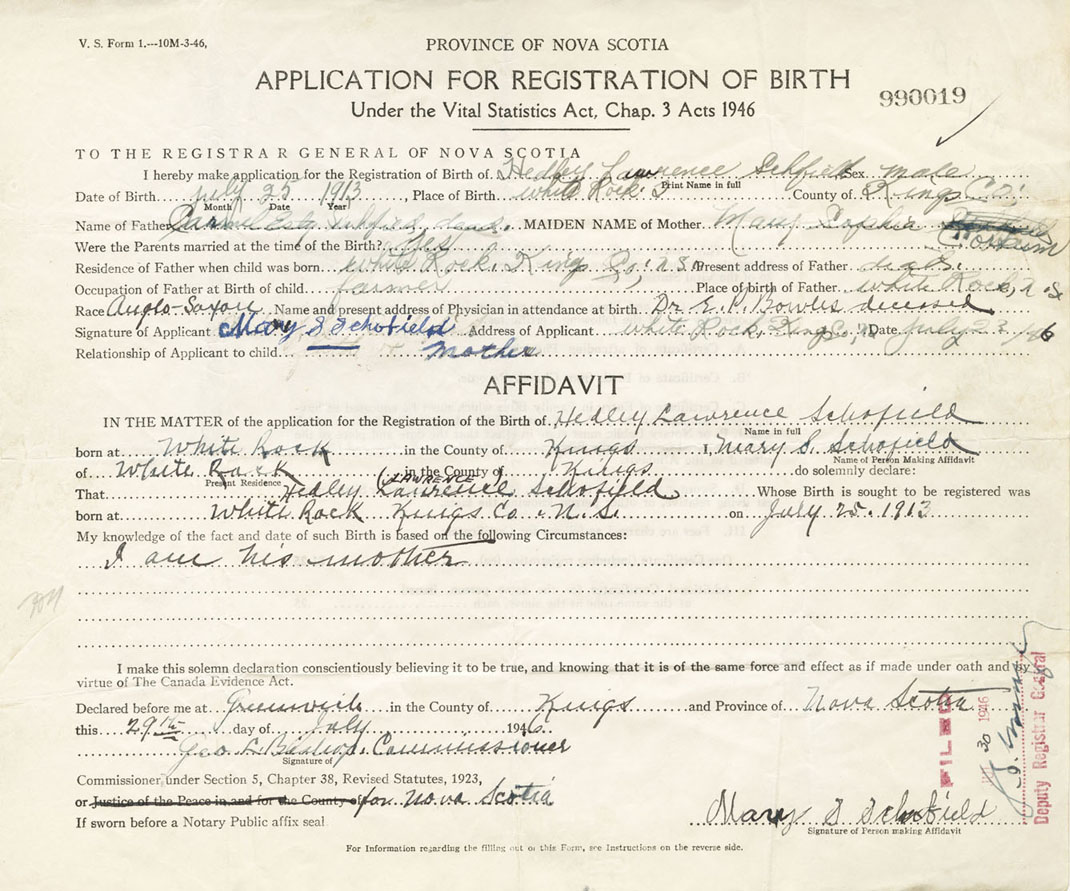 V. S. Form 1.---10M-3-46,
PROVINCE OF NOVA SCOTIA
APPLICATION FOR REGISTRATION OF BIRTH
990019
Under the Vital Statistics Act, Chap. 3 Acts 1946
TO THE REGISTRAR GENERAL OF NOVA SCOTIA
I hereby make application for the Registration of Birth of Hedley Lawrence Schofield Sex male
Print Name in full
Date of Birth July 25 1913, Place of Birth White Rock County of Kings Co.
Month Date Year
Name of Father Schofield MAIDEN NAME of Mother Mary Sophia
Were the Parents married at the time of the Birth? Yes
Residence of Father when child was born White Rock Kings Co; N S Present address of Father
Occupation of Father at birth of child farmer Place of birth of Father White Rock, N. S.
Race Anglo-Saxon Name and present address of Physician in attendance at birth. Dr E. P. Bowles deceased
Signature of Applicant Mary S Schofield Address of Applicant White Rock, Kings Co, Date July 23
Relationship of Applicant to child Mother
AFFIDAVIT
IN THE MATTER of the application for the Registration of the Birth of Hedley Lawrence Schofield
Name in full
born at White Rock in the County of Kings I, Mary S. Schofield
Name of Person Making Affidavit
of White Rock in the County of Kings do solemnly declare:
Present Residence
(LAWRENCE)
That Hedley Lawrence Schofield Whose Birth is sought to be registered was
born at White Rock Kings Co. N. S. on July 25. 1913
My knowledge of the fact and date of such Birth is based on the following Circumstances:
I am his mother
I make this solemn declaration conscientiously believing it to be true, and knowing that it is of the same force and effect as if made under oath and by
virtue of The Canada Evidence Act.
Declared before me at Greenwich in the County of Kings and Province of Nova Scotia
this 29th day of July 1946.
Geo. L. Bishop. Commissioner
Signature of
Commissioner under Section 5, Chapter 38, Revised Statutes, 1923,
or Justice of the Peace in and for the County of for Nova Scotia
If sworn before a Notary Public affix seal
Mary S Schofield
Signature of Person making Affidavit
For Information regarding the filling out of this Form, see Instructions on the reverse side.
FILED
30 1946
Deputy Registrar General